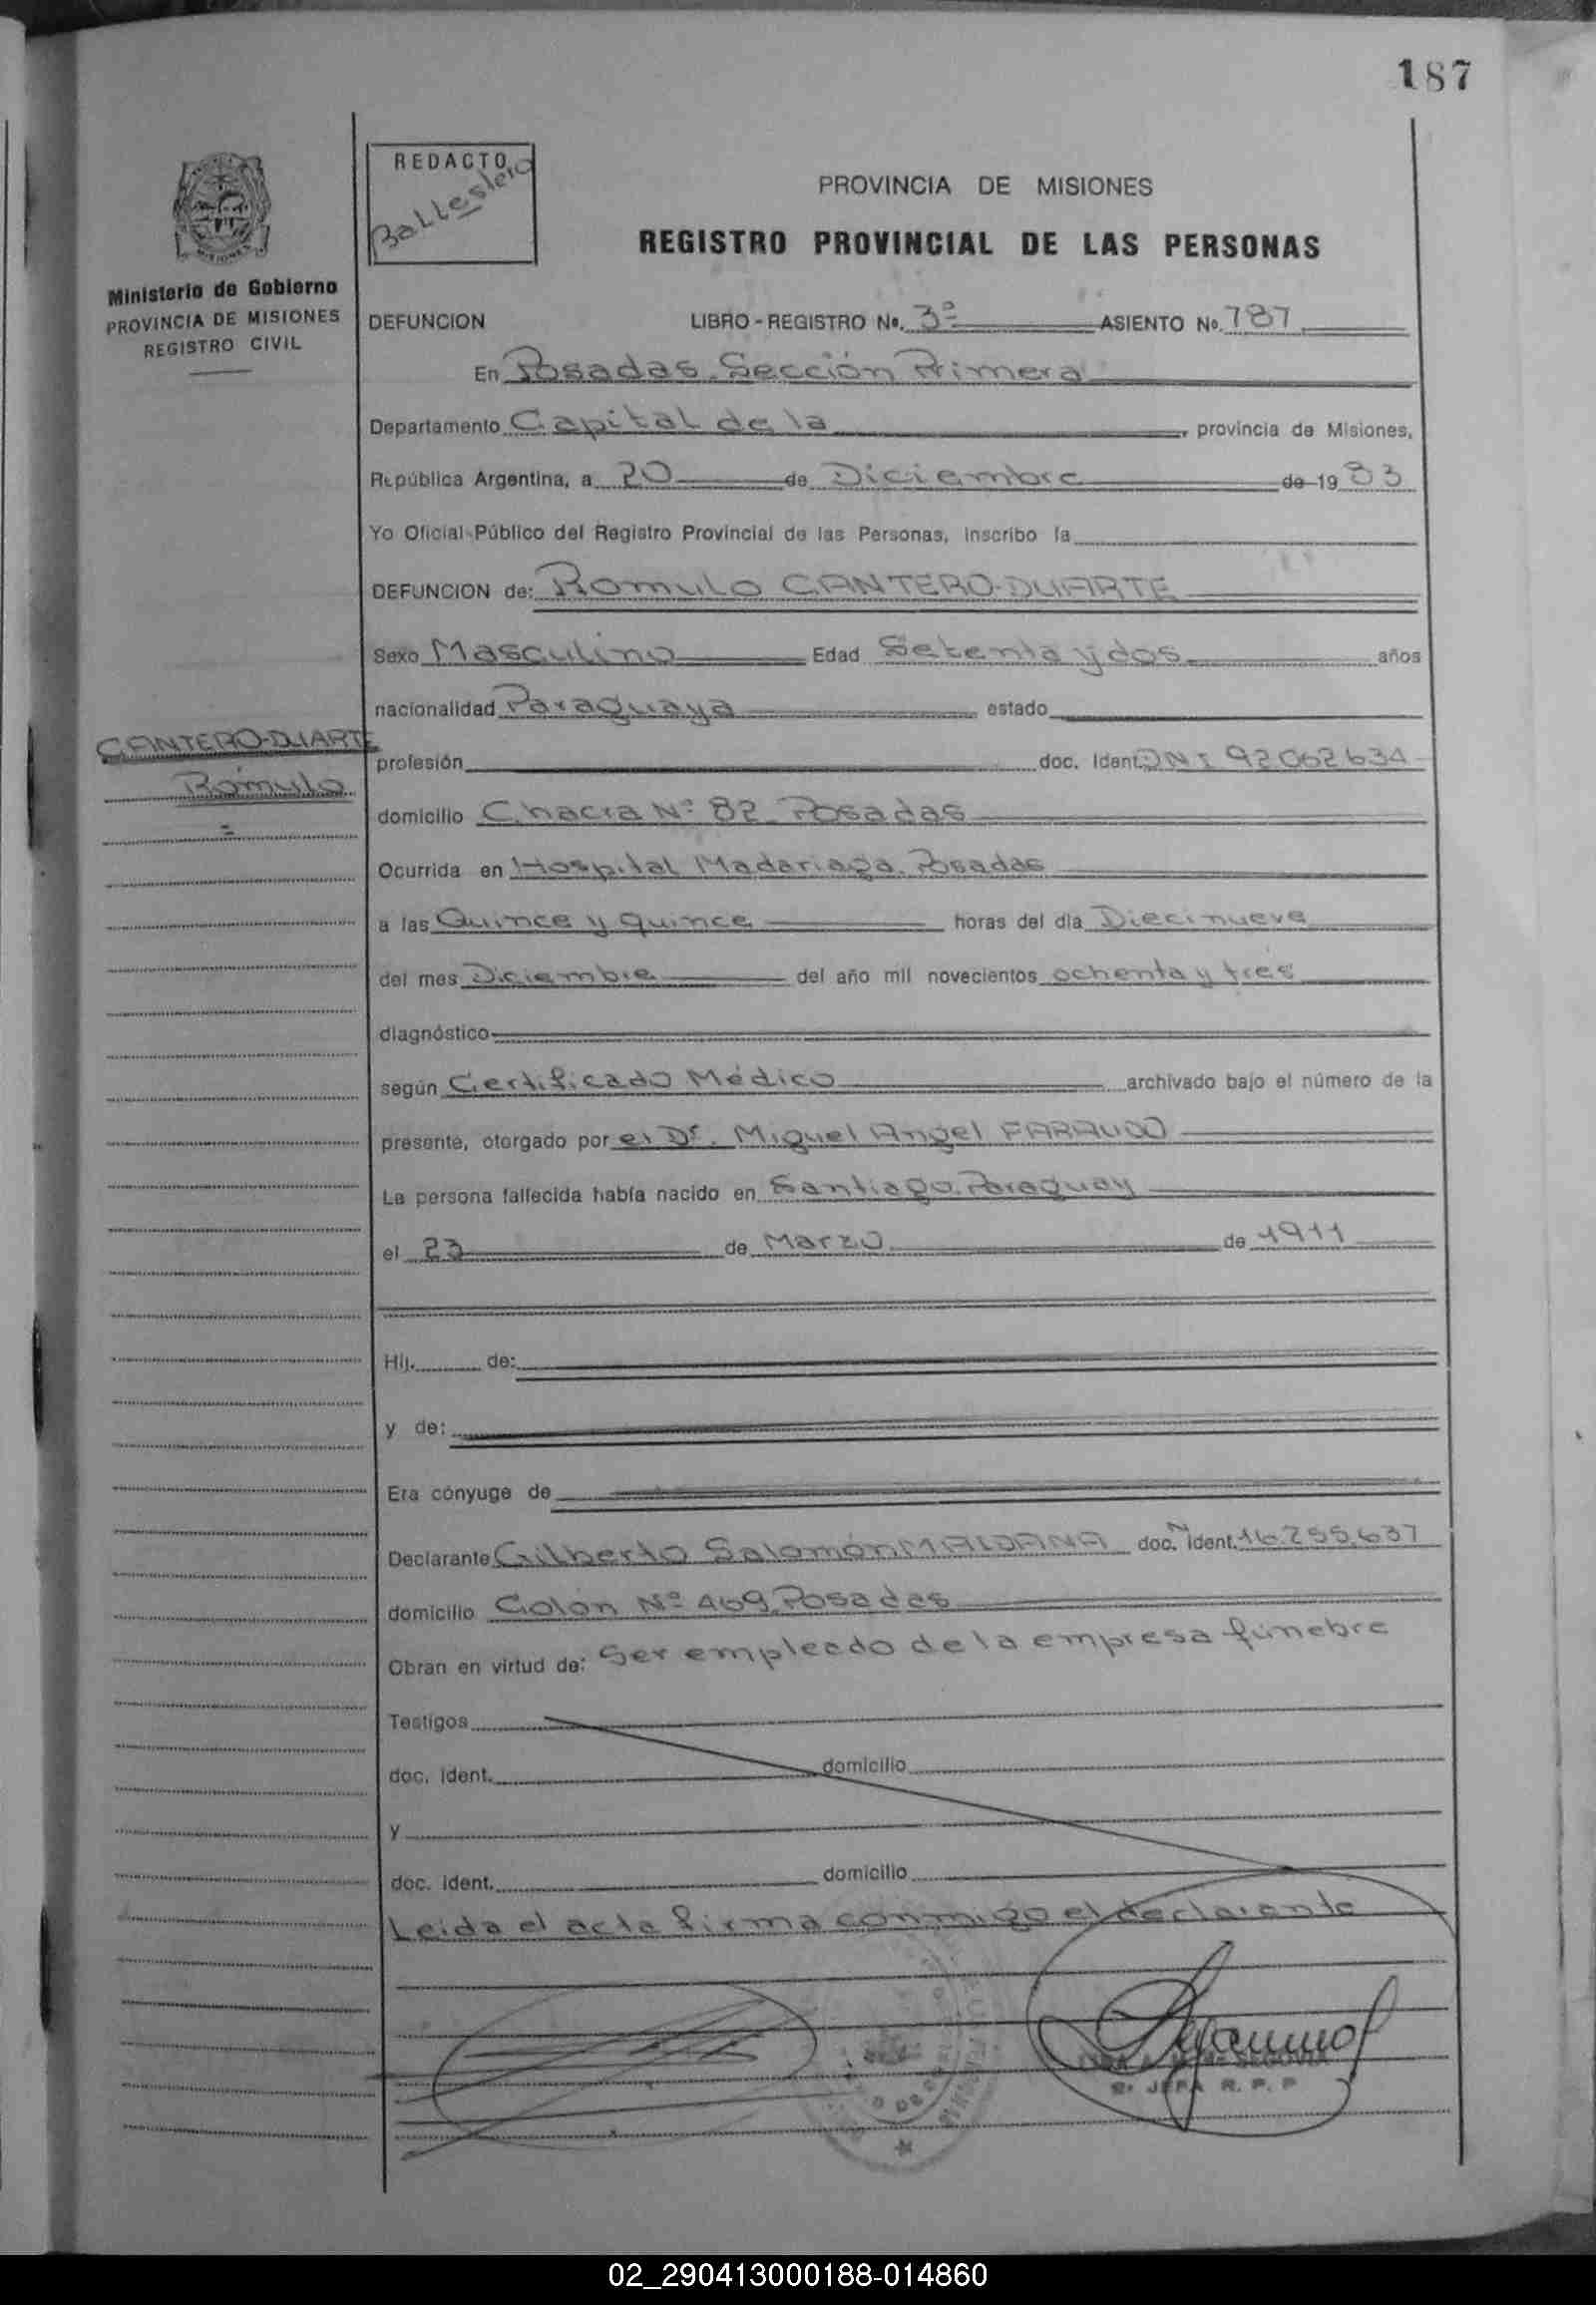 187
REDACTO
Ballesteio
PROVINCIA DE MISIONES
REGISTRO PROVINCIAL DE LAS PERSONAS
Ministerio de Gobierno
PROVINCIA DE MISIONES
REGISTRO CIVIL
DEFUNCION LIBRO - REGISTRO No. 3º ASIENTO No. 787
En Posadas. Sección Primera
Departamento Capital de la, provincia de Misiones,
República Argentina, a 20 de Diciembre de 1983
Yo Oficial Público del Registro Provincial de las Personas, inscribo la
DEFUNCION de: Romulo CANTERO-DUARTE
Sexo Masculino Edad Setenta y dos años
nacionalidad Paraguaya estado
CANTERO-DUARTE
Rómulo
profesión doc. Ident. DNI 92062634
domicilio Chacra Nº 82. Posadas
Ocurrida en Hospital Madariaga. Posadas
a las Quince y quince horas del día Diecinueve
del mes Diciembre del año mil novecientos ochenta y tres
diagnóstico
según Certificado Médico archivado bajo el número de la
presente, otorgado por el Dr. Miguel Angel FARAUDO
La persona fallecida había nacido en Santiago. Paraguay
el 23 de Marzo de 1911
Hij. de:
y de:
Era cónyuge de
Declarante Gilberto Salomón MALDANA doc. N Ident. 16.255.637
domicilio Colón Nº 469. Posadas
Obran en virtud de: Ser empleado de la empresa fúnebre
Testigos
doc. ident. domicilio
y
doc. ident. domicilio
Leida el acta firma conmigo el declarante
JEFA R. P. P
02_290413000188-014860